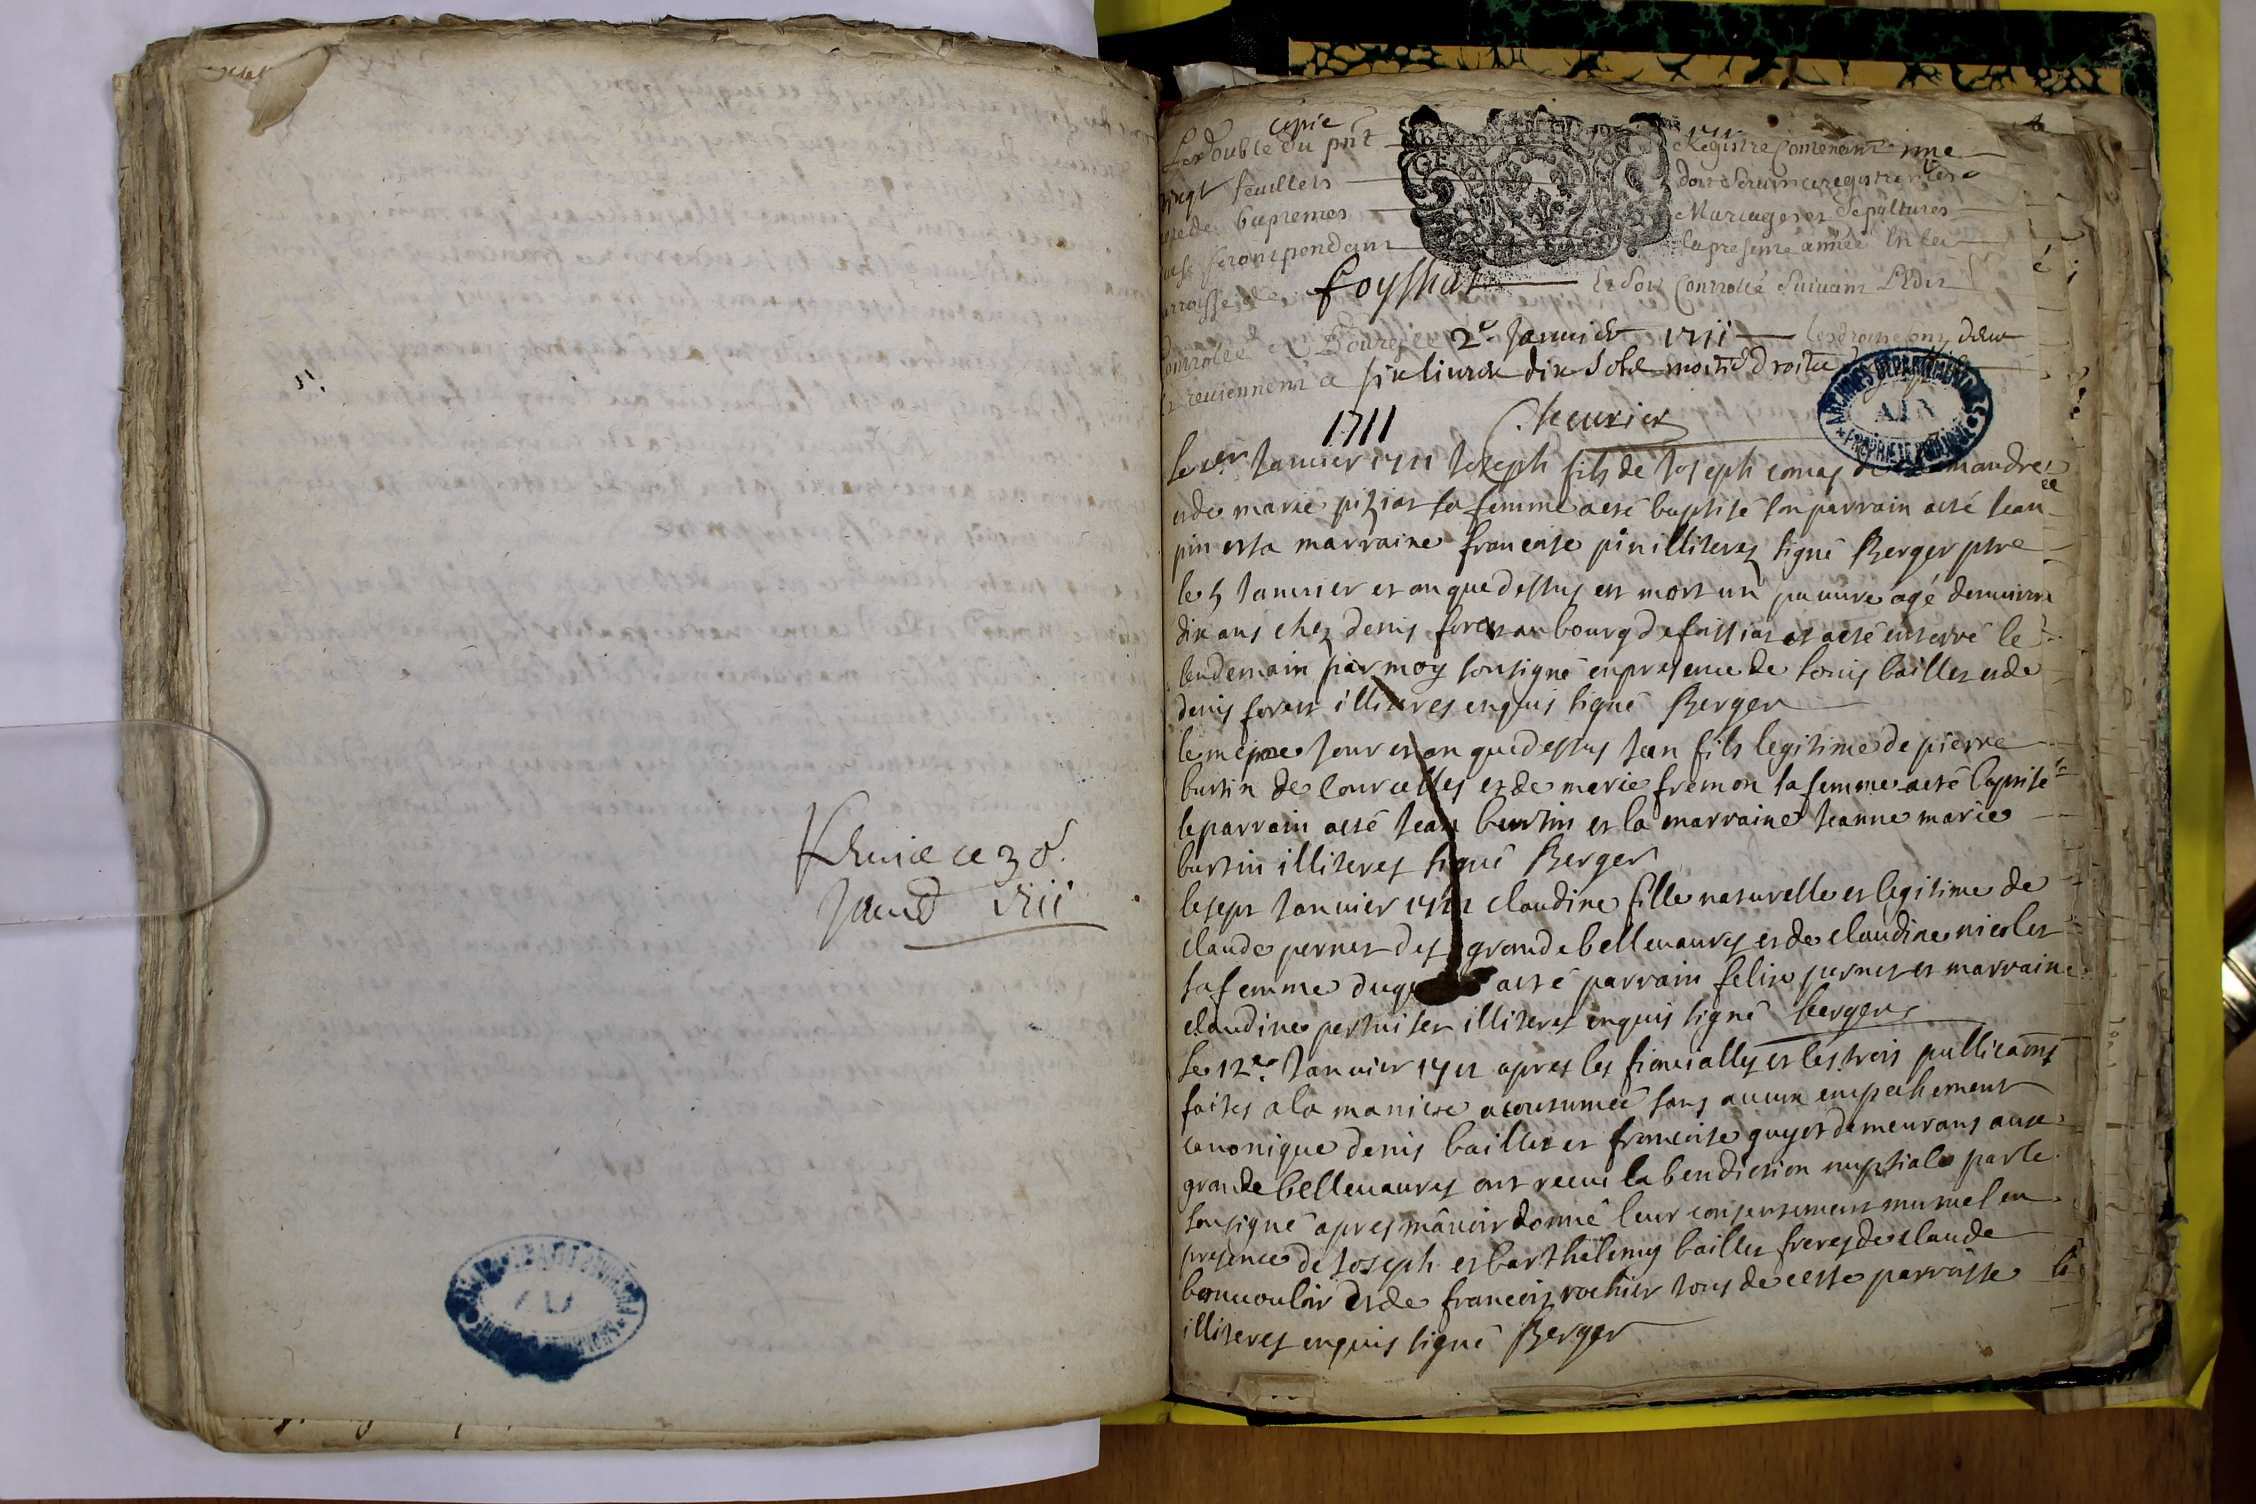 Remis ce 30
Janvd 1711
copie
Le Double du pnt Registre Contenant
vingt feuillets dont
de baptemes Mariages et Sepultures
seront pendant la presente année En la
parroisse de foyssiat Et Soit Controllé Suivant L'Edit
Controllé a Bourg ce 2e Janvier 1711 les droits sont deux
Et reviennent a six livres dix sols moitié droits
1711
le 1er Janvier 1711 Joseph fils de Joseph comas de
et de marie pizias sa femme a esté baptisé son parrain a esté Jean
pin et sa marraine francoise pin illiteres signé Berger ptre
le 5 Janvier et an que dessus est mort un pauvre agé denviron
dix ans chez denis forest au bourg de faissias et a esté enterré le
lendemain par moy sousigné en presence de louis baillet et de
denis forest illiteres enquis signé Berger
le mesme Jour et an que dessus Jean fils legitime de pierre
burtin de courcelles et de marie fremon sa femme a esté baptisé
le parrain a esté Jean burtin et la marraine Jeanne marie
burtin illiteres signé Berger
le sept Janvier 1711 claudine fille naturelle et legitime de
claude pernet des grande bellevaures et de claudine nicolet
sa femme a esté parrain felix pernet et marraine
claudine pertuiset illiteres enquis signé berger
le 12e Janvier 1711 apres les fiancialles et les trois publicaons
faites a la maniere acoutumée sans aucun empechement
canonique denis baillet et francoise guyot demeurans aux
grande bellevaures ont receu la benediction nuptiale par le
sousigné apres m'avoir donné leur consentement mutuel en
presence de Joseph et barthelemy baillet freres de claude
et de francois rochier tous de cette parroisse
illiteres enquis signé Berger